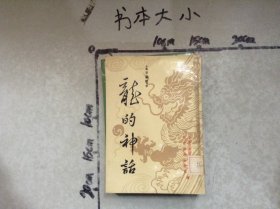 书本大小
10cm
15cm
20cm
龍的神話
10cm
15cm
20cm